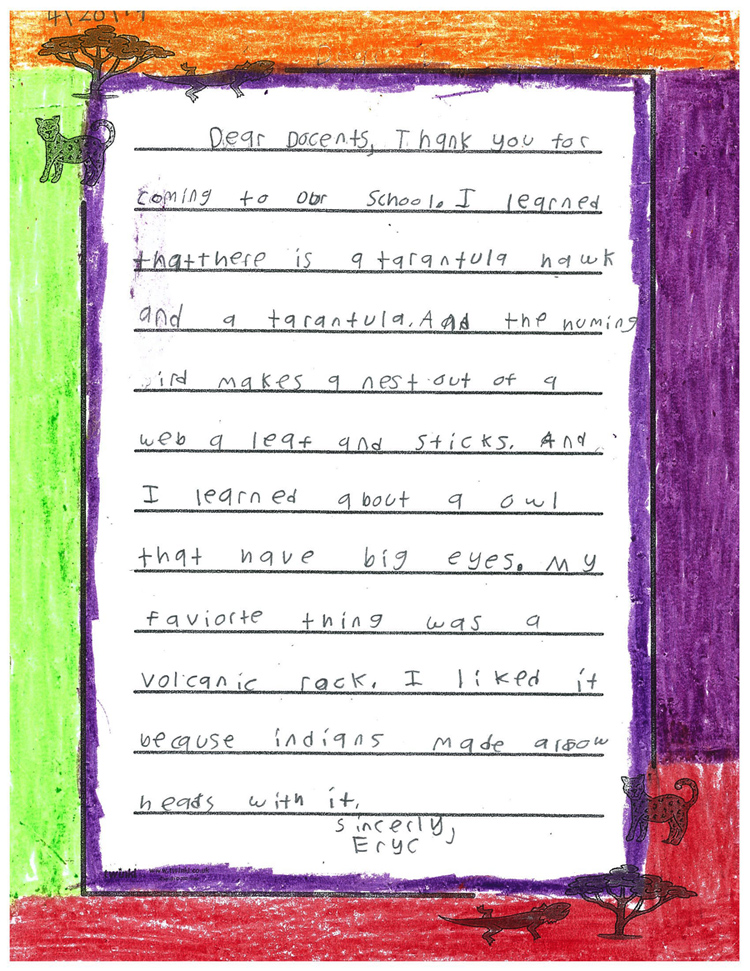 Dear Docents, Thank you for
coming to our school. I learned
thatthere is a tarantula hawk
and a tarantula. And the huming
bird makes a nest out of a
web a leaf and sticks. And
I learned about a owl
that have big eyes. My
faviorte thing was a
volcanic rock. I liked it
because indians made arrow
heads with it.
sincerly,
Eryc
twinkl